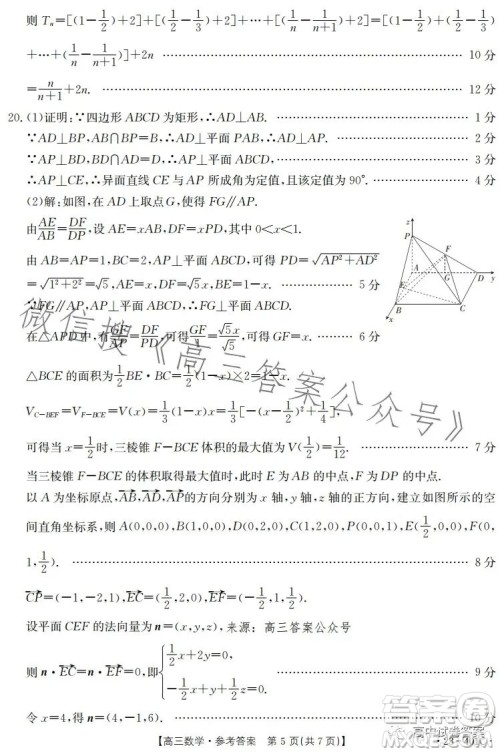 则 Tₙ=[(1-1/2)+2]+[(1/2-1/3)+2]+…+[(1/n-1/(n+1))+2]=[(1-1/2)+(1/2-1/3)
+…+(1/n-1/(n+1))]+2n …… 10分
=n/(n+1)+2n. …… 12分
20.(1)证明:∵四边形 ABCD 为矩形,∴AD⊥AB. …… 1分
∵AD⊥BP,AB∩BP=B,∴AD⊥平面 PAB,∴AD⊥AP. …… 2分
∵AP⊥BD,BD∩AD=D,∴AP⊥平面 ABCD, …… 3分
∴AP⊥CE,∴异面直线 CE 与 AP 所成角为定值,且该定值为90°. …… 4分
(2)解:如图,在 AD 上取点G,使得 FG∥AP.
由AE/AB=DF/DP,设 AE=x,DF=xPD,其中0<x<1.
由 AB=AP=1,BC=2,AP⊥平面 ABCD,可得 PD=√(AP²+AD²)
=√(1²+2²)=√5,AE=x,DF=√5x,BE=1-x. …… 5分
∵FG∥AP,AP⊥平面 ABCD,∴FG⊥平面 ABCD.
在△APD 中,有GF/AP=DF/PD,可得GF/1=√5x/√5,可得 GF=x. …… 6分
△BCE 的面积为1/2BE·BC=1/2(1-x)×2=1-x,
V_{C-BEF}=V_{F-BCE}=V(x)=1/3(1-x)x=1/3[-(x-1/2)²+1/4],
可得当 x=1/2时,三棱锥 F-BCE 体积的最大值为 V(1/2)=1/12. …… 7分
当三棱锥 F-BCE 的体积取得最大值时,此时 E 为 AB 的中点,F 为 DP 的中点.
以 A 为坐标原点,AB,AD,AP的方向分别为 x 轴,y 轴,z 轴的正方向,建立如图所示的空
间直角坐标系,则 A(0,0,0),B(1,0,0),D(0,2,0),C(1,2,0),P(0,0,1),E(1/2,0,0),F(0,
1,1/2). …… 8分
CP=(-1,-2,1),EC=(1/2,2,0),EF=(-1/2,1,1/2).
设平面 CEF 的法向量为 n=(x,y,z), 来源:高三答案公众号
则 n·EC=n·EF=0,即{1/2x+2y=0,
-1/2x+y+1/2z=0, …… 9分
令 x=4,得 n=(4,-1,6). …… 10分
【高三数学·参考答案 第5页(共7页)】
z
P
F
A
G
D
y
E
B
C
x
微信搜《高三答案公众号》
答案圈
高中试卷答案